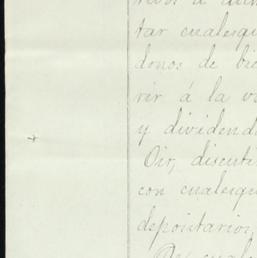 tar cualesqu
donos de bie
rir á la v
y dividend
Oir, discuti
con cualesqu
depositarios,